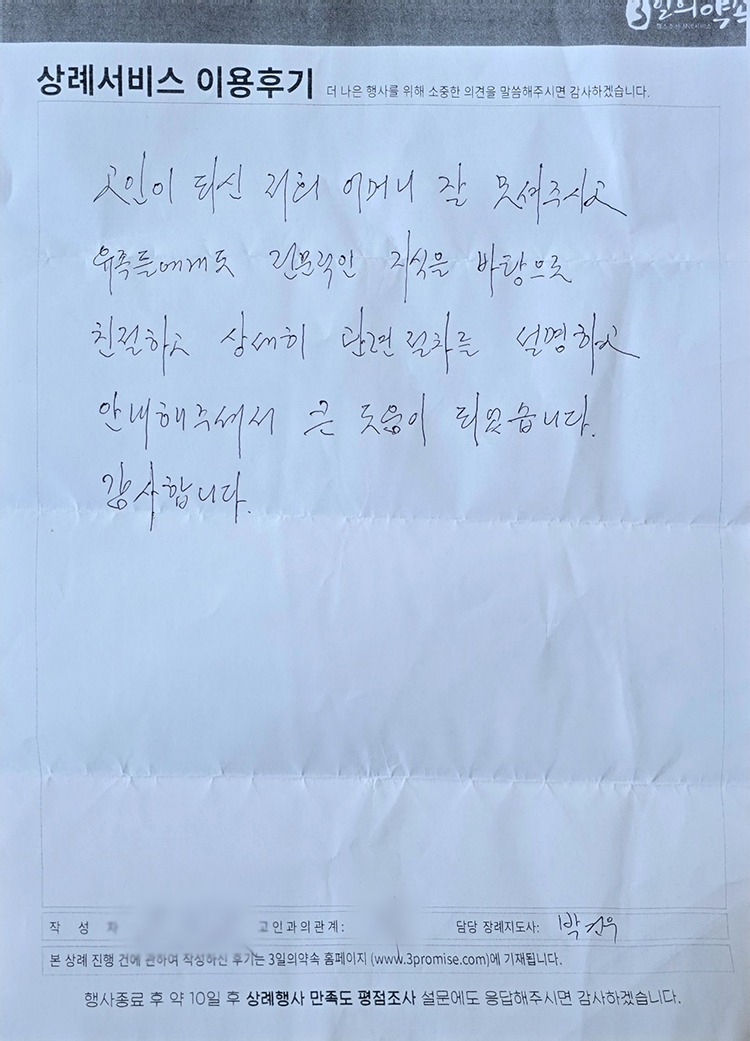 3일의약속
상례서비스 이용후기 더 나은 행사를 위해 소중한 의견을 말씀해주시면 감사하겠습니다.
고인이 되신 저희 어머니 잘 모셔주시고
유족들에게도 전문적인 지식을 바탕으로
친절하고 상세히 관련 절차를 설명하고
안내해주셔서 큰 도움이 되었습니다.
감사합니다.
작 성 자 고인과의관계: 담당 장례지도사: 박
본 상례 진행 건에 관하여 작성하신 후기는 3일의약속 홈페이지 (www.3promise.com)에 기재됩니다.
행사종료 후 약 10일 후 상례행사 만족도 평점조사 설문에도 응답해주시면 감사하겠습니다.